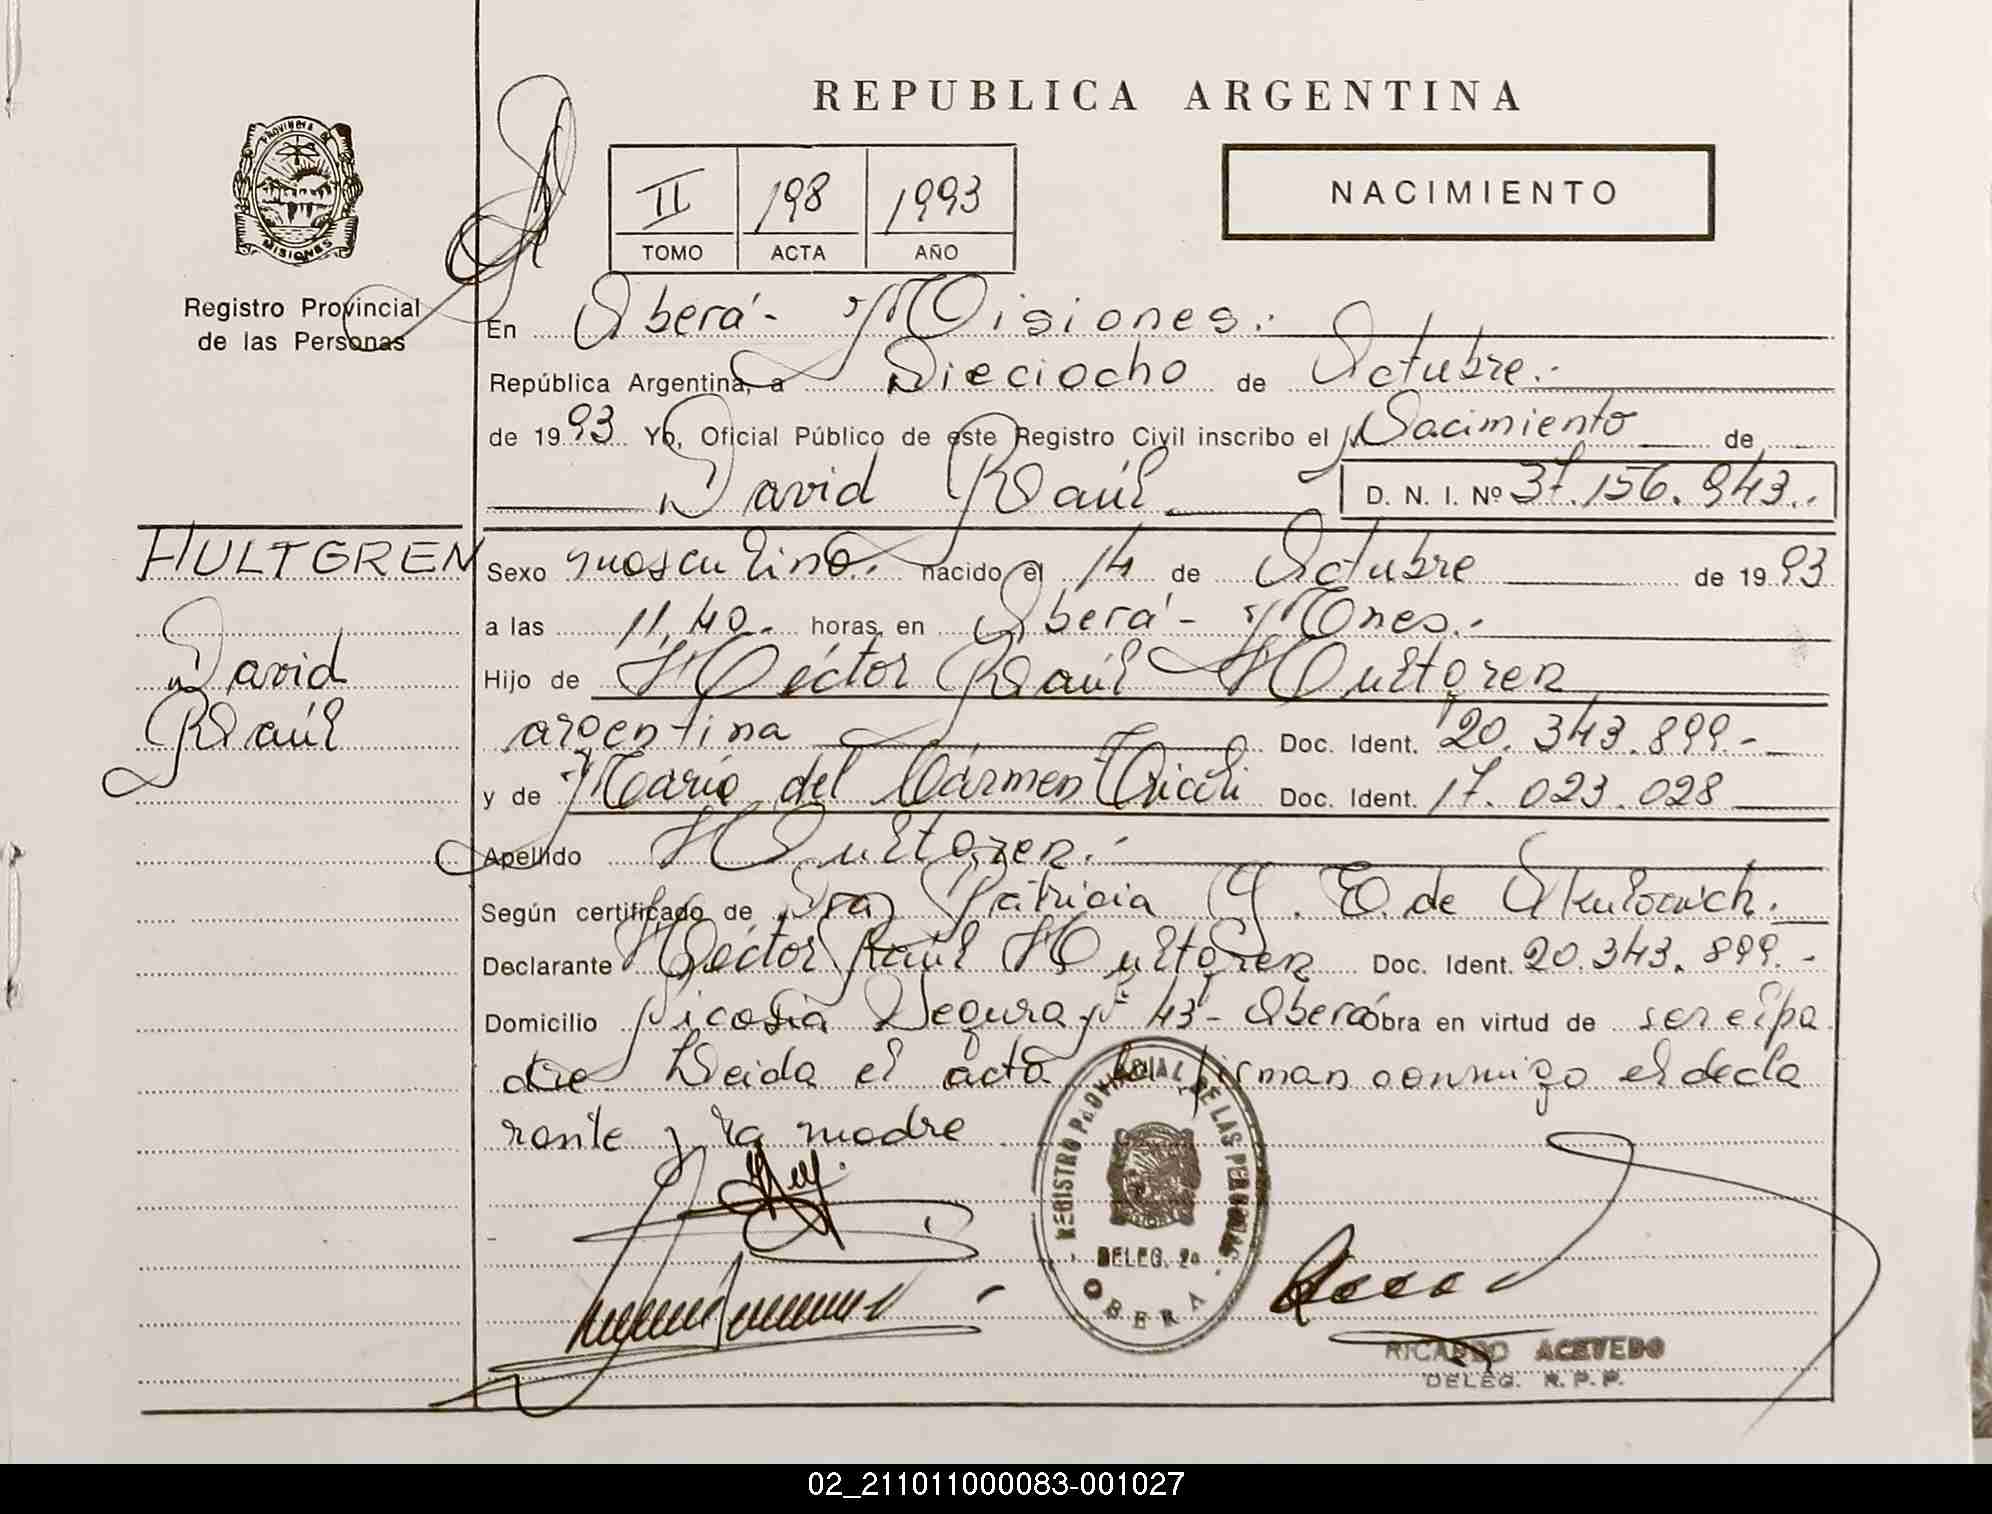 REPUBLICA ARGENTINA
Provincia de
MISIONES
Registro Provincial
de las Personas
II 198 1993
TOMO ACTA AÑO
NACIMIENTO
En Oberá - Misiones.
República Argentina, a Dieciocho de Octubre.
de 1993 Yo, Oficial Público de este Registro Civil inscribo el Nacimiento de
David Raúl D. N. I. Nº 37.156.943.
HULTGREN
David
Raúl
Sexo masculino. nacido el 14 de Octubre de 1993
a las 11,40. horas, en Oberá - Mnes.
Hijo de Héctor Raúl Hultgren
argentina Doc. Ident. 20.343.899.-
y de María del Cármen Doc. Ident. 17.023.028
Apellido Hultgren.
Según certificado de Dra Patricia G. E. de
Declarante Héctor Raúl Hultgren Doc. Ident. 20.343.899.-
Domicilio Nicosia Segura Nº 43 - Oberá obra en virtud de ser el pa
dre Leida el acta la firman conmigo el decla
rante y la madre
REGISTRO PROVINCIAL DE LAS PERSONAS
DELEG. 2a
OBERA
RICARDO ACEVEDO
DELEG. R.P.P.
02_211011000083-001027